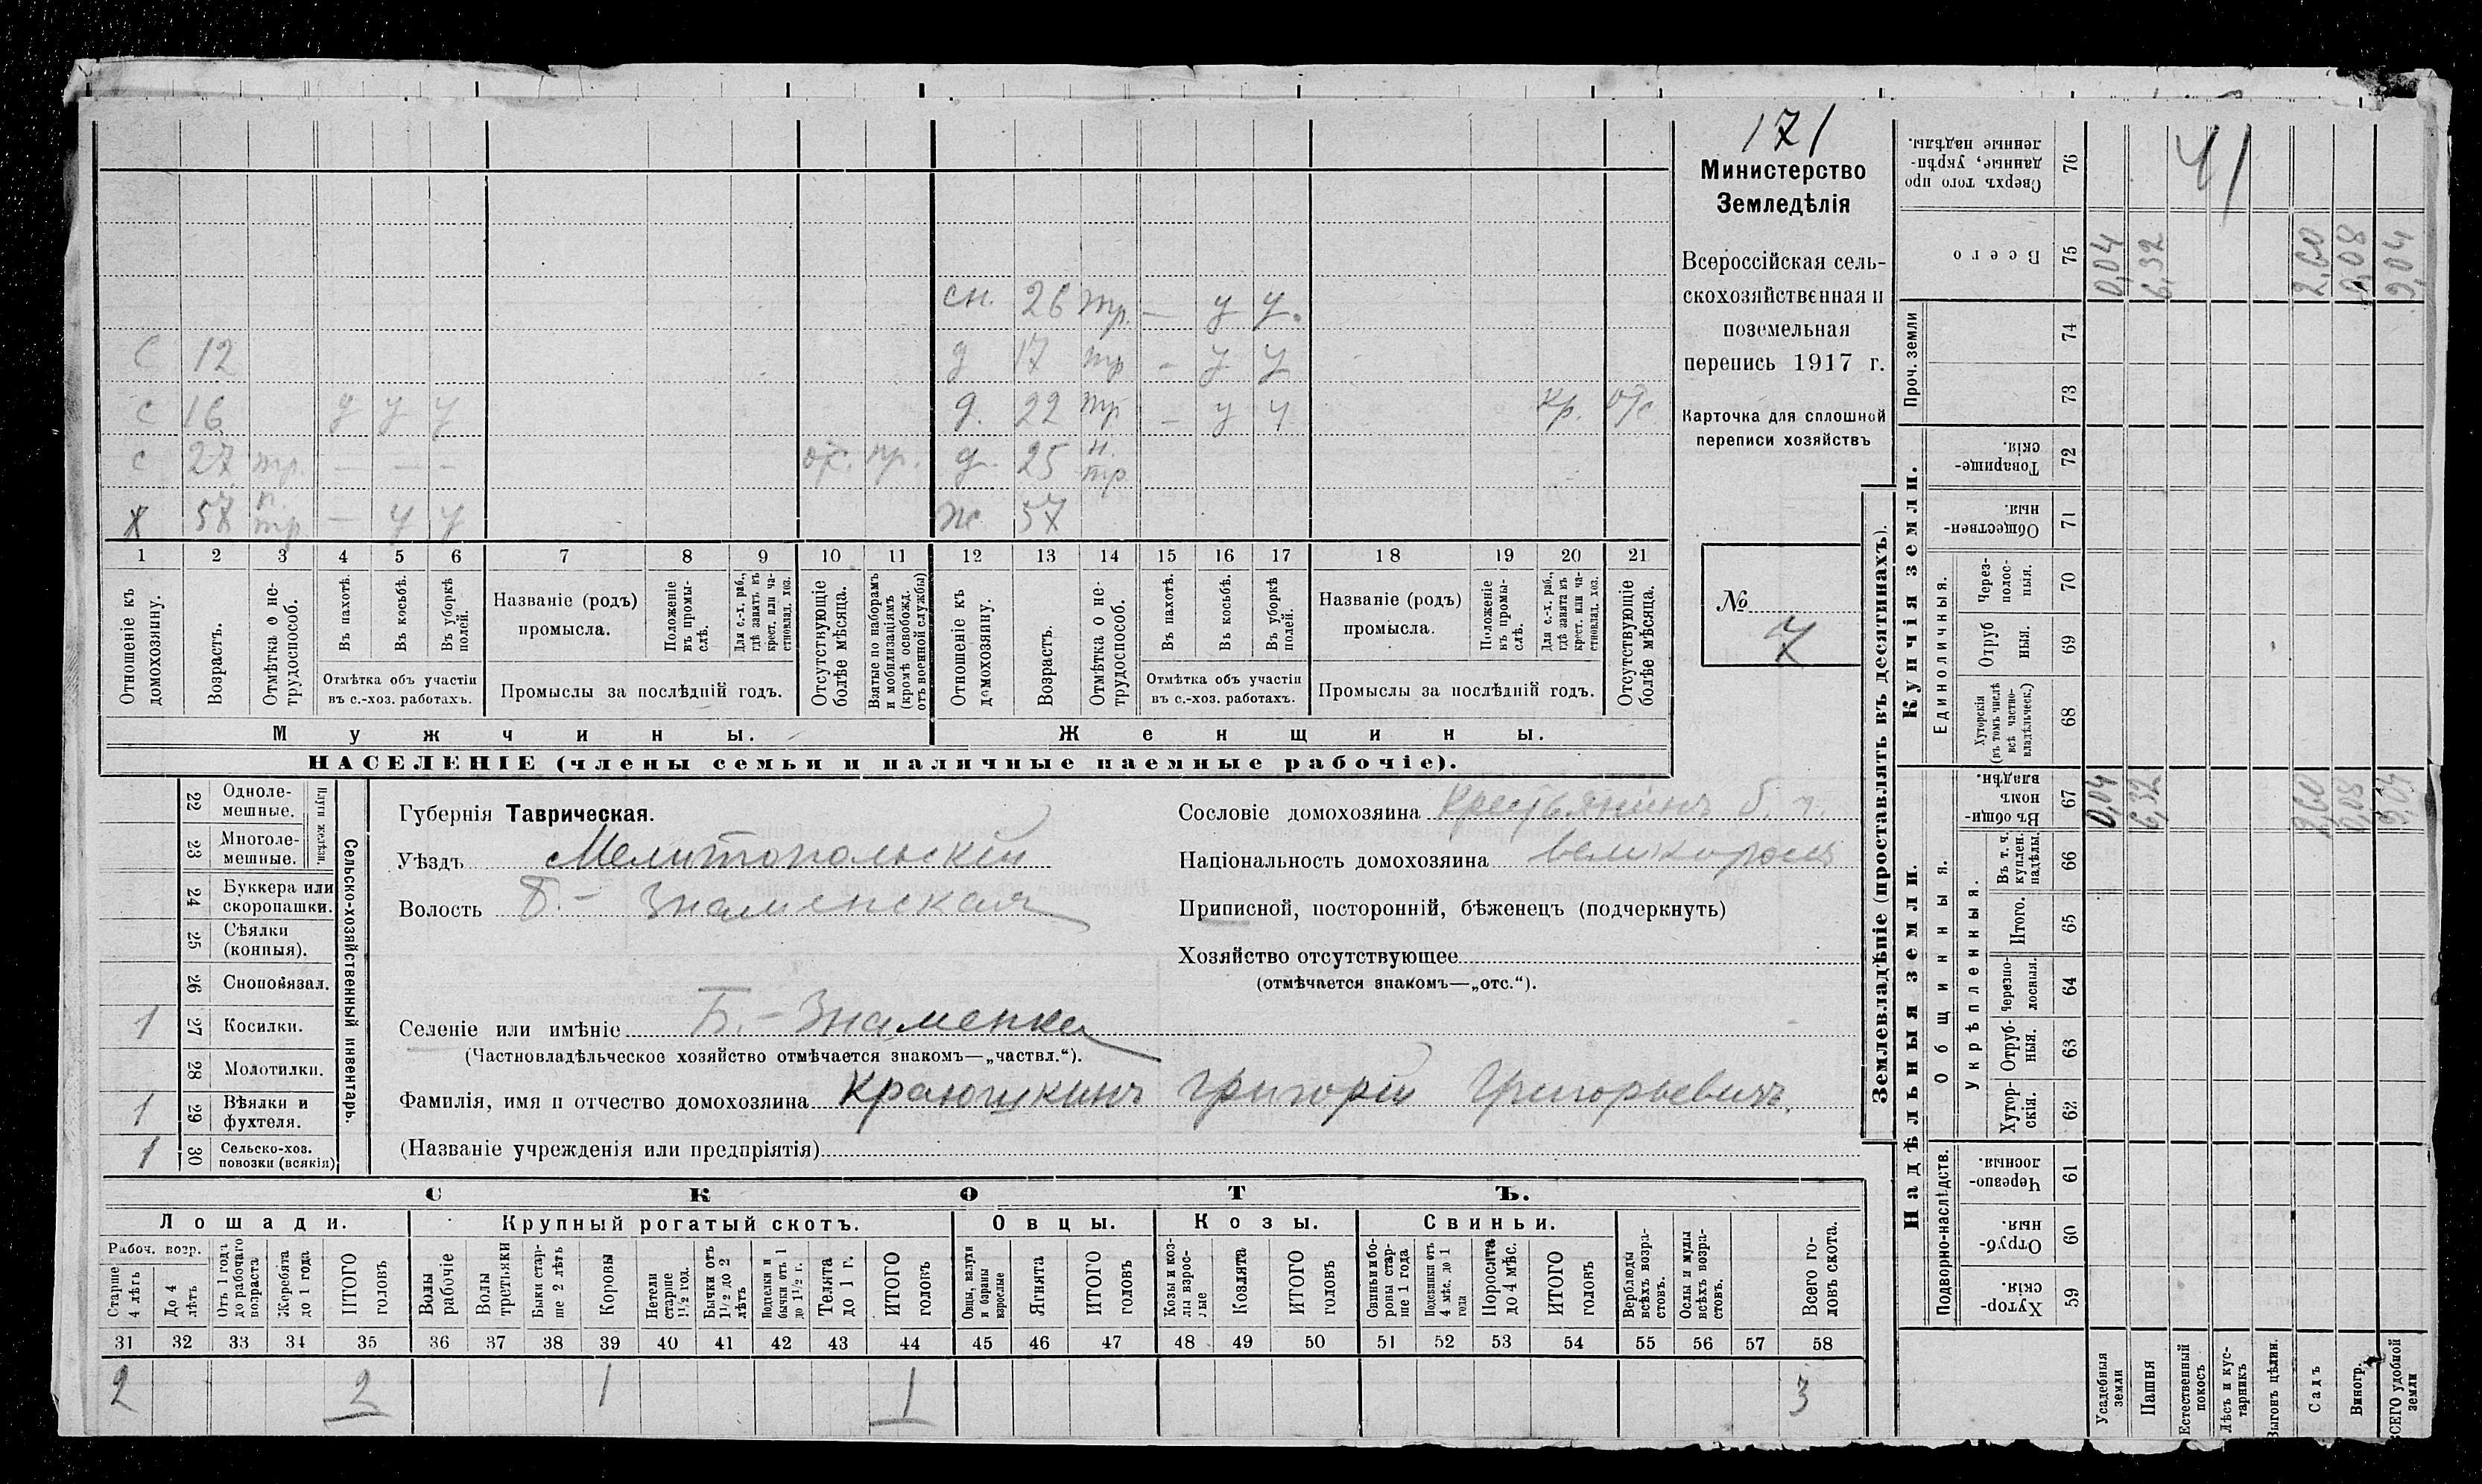 171
Министерство
Земледѣлія
Всероссійская сель-
скохозяйственная и
поземельная
перепись 1917 г.
Карточка для сплошной
переписи хозяйствъ
№
7
41
сн. 26 тр. — у у.
С 12 д 17 тр - у у
С 16 д у у д. 22 тр - у у кр. отс
с 27 тр. — — — от. пр. д. 25 н. тр.
х 57 н. тр — у у ж 57
1 2 3 4 5 6 7 8 9 10 11 12 13 14 15 16 17 18 19 20 21
Отношеніе къ домохозяину.
Возрастъ.
Отмѣтка о не-трудоспособ.
Въ пахотѣ.
Въ косьбѣ.
Въ уборкѣ полей.
Отмѣтка объ участіи
въ с.-хоз. работахъ.
Названіе (родъ)
промысла.
Положеніе въ промы-слѣ.
Для с.-х. раб., гдѣ занятъ въ крест. или ча-стновлад. хоз.
Промыслы за послѣдній годъ.
Отсутствующіе болѣе мѣсяца.
Взятые по наборамъ и мобилизаціямъ (кромѣ освобожд. отъ военной службы)
Отношеніе къ домохозяину.
Возрастъ.
Отмѣтка о не-трудоспособ.
Въ пахотѣ.
Въ косьбѣ.
Въ уборкѣ полей.
Отмѣтка объ участіи
въ с.-хоз. работахъ.
Названіе (родъ)
промысла.
Положеніе въ промы-слѣ.
Для с.-х. раб., гдѣ занята въ крест. или ча-стновлад. хоз.
Промыслы за послѣдній годъ.
Отсутствующіе болѣе мѣсяца.
Мужчины.
Женщины.
НАСЕЛЕНІЕ (члены семьи и наличные наемные рабочіе).
22 Одноле-мешные.
23 Многоле-мешные.
Плуги желѣзн.
24 Буккера или скоропашки.
25 Сѣялки (конныя).
26 Сноповязал.
1 27 Косилки.
28 Молотилки.
1 29 Вѣялки и фухтеля.
1 30 Сельско-хоз. повозки (всякія)
Сельско-хозяйственный инвентарь.
Губернія Таврическая.
Уѣздъ Мелитопольскій
Волость Б.- Знаменская
Селеніе или имѣніе Б.-Знаменка
(Частновладѣльческое хозяйство отмѣчается знакомъ—„частвл.“).
Фамилія, имя и отчество домохозяина Краюшкинъ Григорій Григорьевичъ.
(Названіе учрежденія или предпріятія)
Сословіе домохозяина Крестьянинъ б. г.
Національность домохозяина великороссъ
Приписной, посторонній, бѣженецъ (подчеркнуть)
Хозяйство отсутствующее
(отмѣчается знакомъ—„отс.“).
СКОТЪ.
Лошади.
Крупный рогатый скотъ.
Овцы.
Козы.
Свиньи.
Рабоч. возр.
Старше 4 лѣтъ
До 4 лѣтъ
Отъ 1 года до рабочаго возраста
Жеребята до 1 года
ИТОГО головъ
Волы рабочіе
Волы третьяки
Быки стар-ше 2 лѣтъ
Коровы
Нетели старше 1½ год.
Бычки отъ 1½ до 2 лѣтъ
Подтелки и бычки отъ 1 до 1½ г.
Телята до 1 г.
ИТОГО головъ
Овцы, валухи и бараны взрослые
Ягнята
ИТОГО головъ
Козы и коз-лы взрос-лые
Козлята
ИТОГО головъ
Свиньи и бо-ровы стар-ше 1 года
Подсвинки отъ 4 мѣс. до 1 года
Поросята до 4 мѣс.
ИТОГО головъ
Верблюды всѣхъ возра-стовъ.
Ослы и мулы всѣхъ возра-стовъ.
Всего го-ловъ скота.
31 32 33 34 35 36 37 38 39 40 41 42 43 44 45 46 47 48 49 50 51 52 53 54 55 56 57 58
2 2 1 1 3
Землевладѣніе (проставлять въ десятинахъ).
Надѣльныя земли.
Купчія земли.
Проч. земли
Подворно-наслѣдств.
Общинныя.
Укрѣпленныя.
Единоличныя.
Сверхъ того про данные, укрѣп-ленные надѣлы. 76
Всего 75
74
73
Товарище-скія. 72
Обществен-ныя. 71
Через-полос-ныя. 70
Отруб ныя. 69
Хуторскія (въ томъ числѣ всѣ частно-владѣльческ.) 68
Въ общи-номъ владѣн. 67
Въ т. ч. куплен. надѣлы. 66
Итого. 65
Черезпо-лосныя. 64
Отруб-ныя. 63
Хутор-скія. 62
Черезпо-лосныя. 61
Отруб-ныя. 60
Хутор-скія. 59
0,04 6,32 2,60 0,08 9,04
0,04 6,32 2,60 0,08 9,04
Усадебныя земли
Пашня
Естественный покосъ
Лѣсъ и кус-тарникъ
Выгонъ цѣлин.
Садъ
Виногр.
ВСЕГО удобной земли